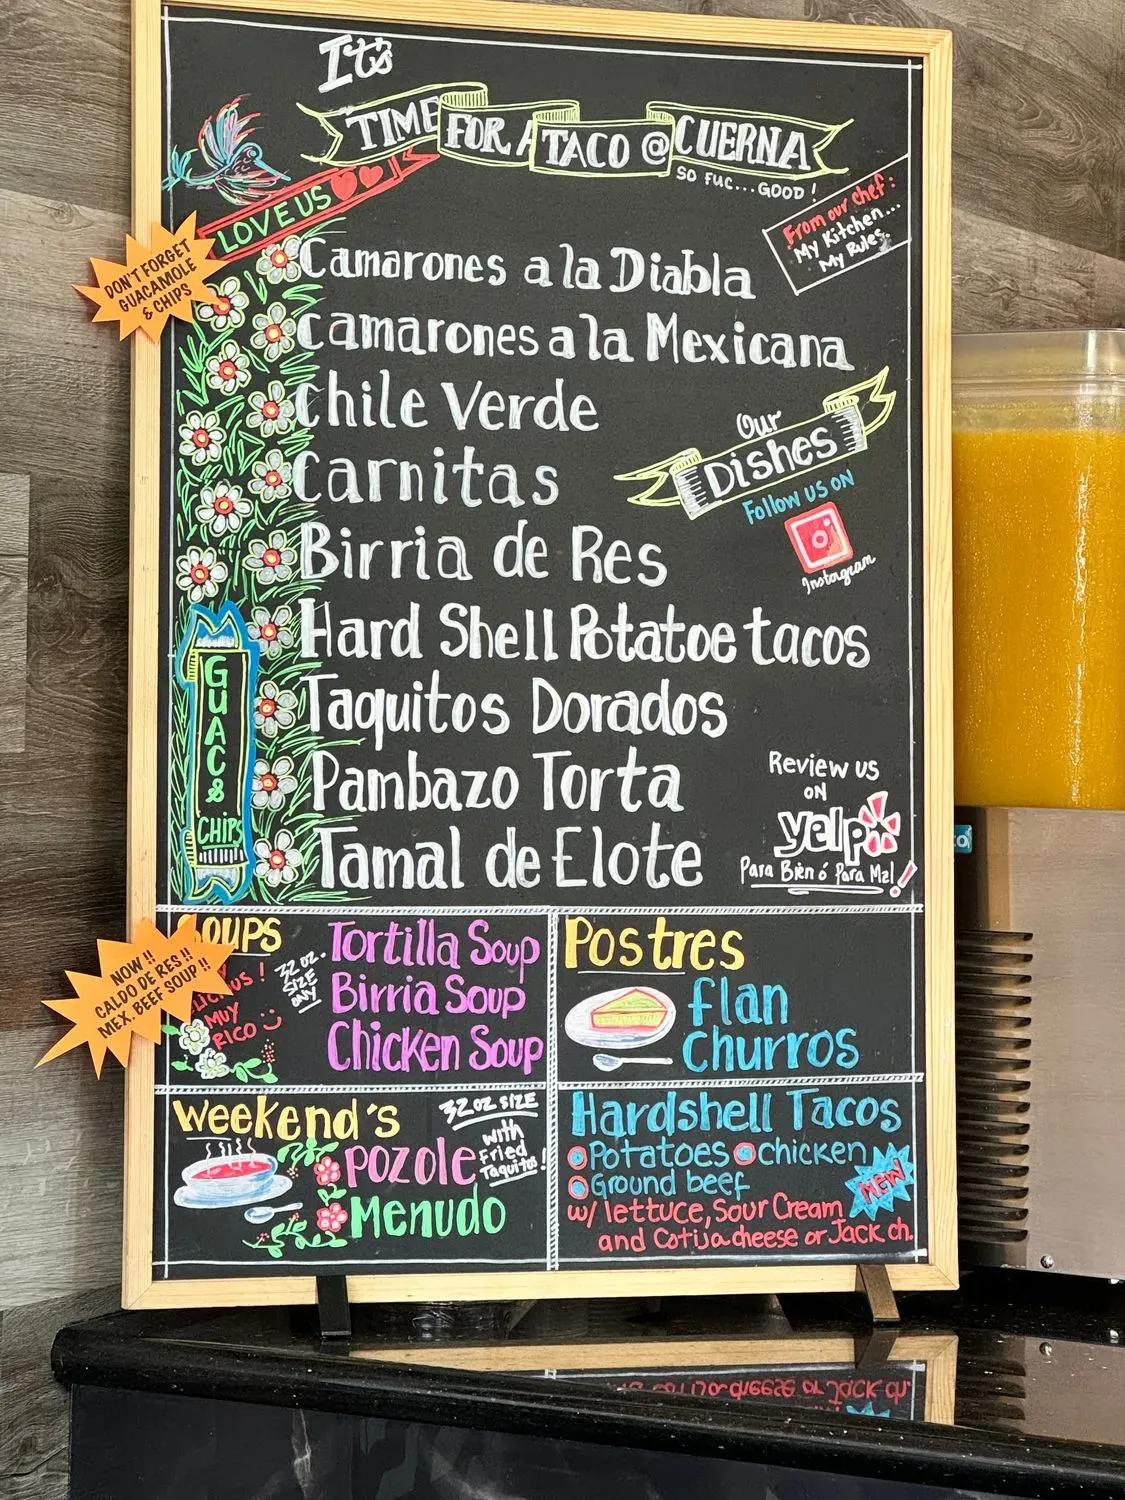 It's
TIME FOR A TACO @ CUERNA
SO FUC...GOOD!
LOVE US
From our chef:
My Kitchen...
My Rules.
DON'T FORGET
GUACAMOLE
& CHIPS
Camarones a la Diabla
Camarones a la Mexicana
Chile Verde
Carnitas
Birria de Res
Hard Shell Potatoe tacos
Taquitos Dorados
Pambazo Torta
Tamal de Elote
Our
Dishes
Follow us on
Instagram
GUAC &
CHIPS
Review us
on
yelp
Para Bien ó Para Mal!
SOUPS
32 oz.
SIZE
only
Tortilla Soup
Birria Soup
Chicken Soup
NOW!!
CALDO DE RES!!
MEX. BEEF SOUP!!
MUY
RICO
Postres
flan
churros
Weekend's
32 oz SIZE
with
Fried
Taquitos!
POZOLE
Menudo
Hardshell Tacos
Potatoes chicken
Ground beef
NEW
w/ lettuce, Sour Cream
and Cotija cheese or Jack ch.